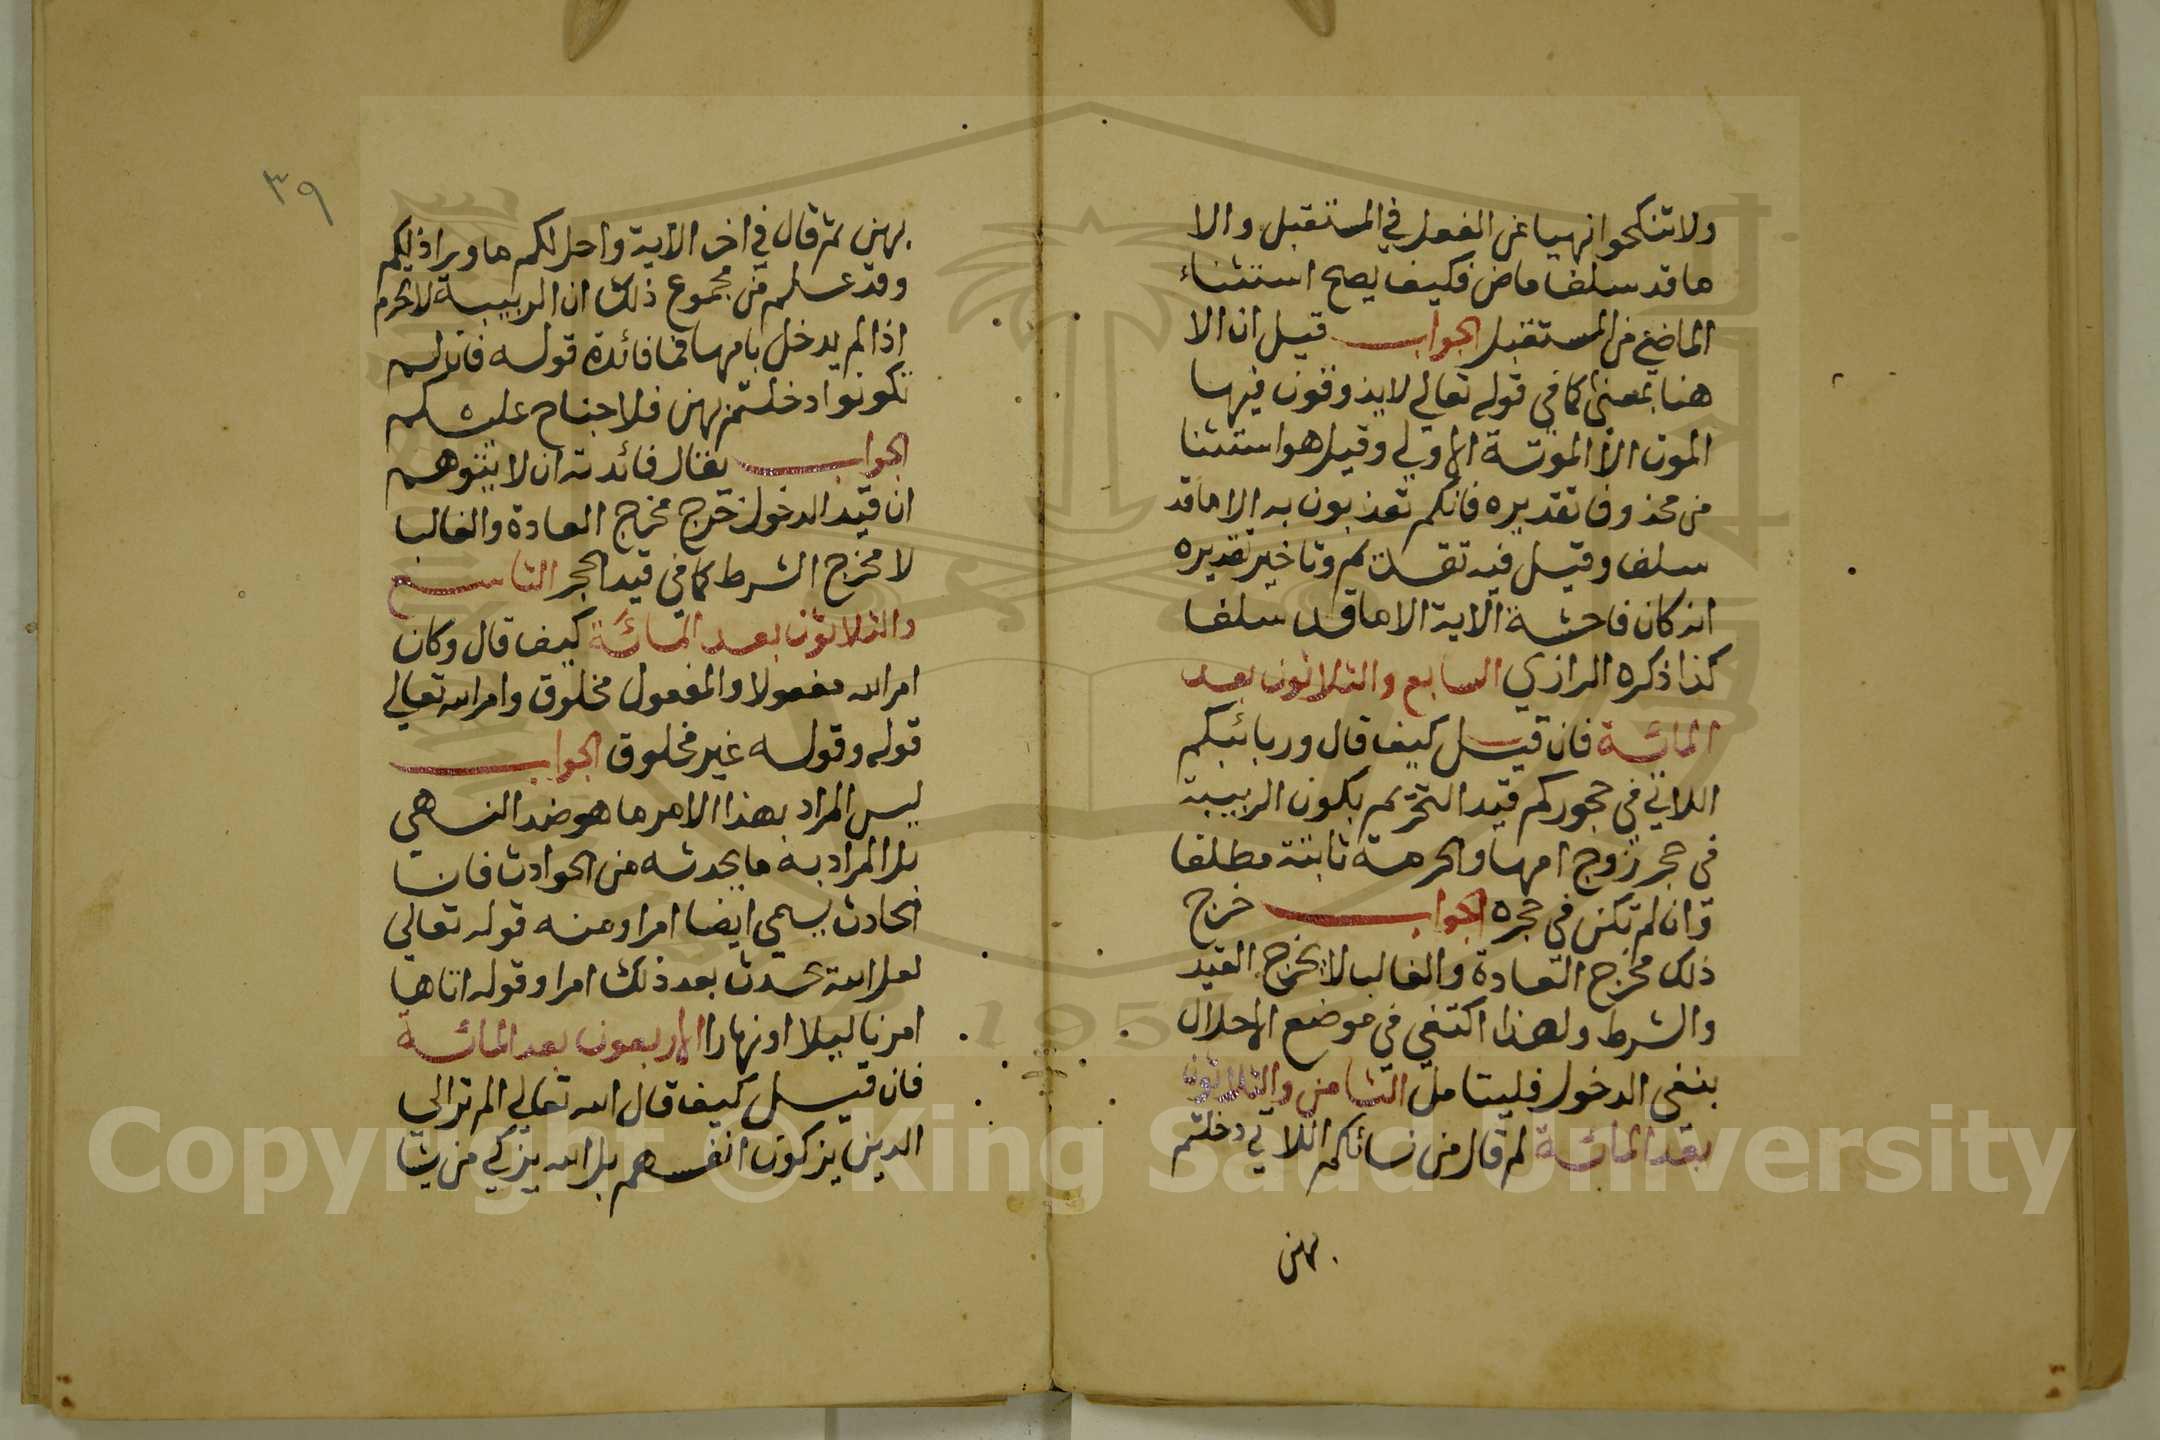 ولا تنكحوا نهيا عن الفعل في المستقبل والا
ما قد سلف ماض فكيف يصح استثناء
الماضي من المستقبل الجواب قيل ان الا
هنا بمعنى كما في قوله تعالى لا يذوقون فيها
الموت الا الموتة الاولى وقيل هو استثنا
من محذوف تقديره فانكم تعذبون به الا ما قد
سلف وقيل فيه تقديم وتاخير تقديره
انه كان فاحشة الاية الا ما قد سلف
كذا ذكره الرازي السابع والثلاثون بعد
المائة فان قيل كيف قال وربائبكم
اللاتي في حجوركم قيد التحريم بكون الربيبة
في حجر زوج امها والحرمة ثابتة مطلقا
وان لم تكن في حجره الجواب خرج
ذلك مخرج العادة والغالب لا يخرج القيد
والشرط ولهذا اكتفي في موضع الاحلال
بنفي الدخول فليتامل الثامن والثلاثون
بعد المائة لم قال من نسائكم اللاتي دخلتم
بهن
٣٩
بهن ثم قال في اخر الاية واحل لكم ما ورا ذلكم
وقد علم من مجموع ذلك ان الربيبة لا تحرم
اذا لم يدخل بامها فما فائدة قوله فان لم
تكونوا دخلتم بهن فلا جناح عليكم
الجواب يقال فائدته ان لا يتوهم
ان قيد الدخول خرج مخرج العادة والغالب
لا مخرج الشرط كما في قيد الحجر التاسع
والثلاثون بعد المائة كيف قال وكان
امر الله مفعولا والمفعول مخلوق وامر الله تعالى
قوله وقوله غير مخلوق الجواب
ليس المراد بهذا الامر ما هو ضد النهي
بل المراد به ما يحدثه من الحوادث فان
الحادث يسمى ايضا امرا ومنه قوله تعالى
لعل الله يحدث بعد ذلك امرا وقوله اتاها
امرنا ليلا او نهارا الاربعون بعد المائة
فان قيل كيف قال الله تعالى الم تر الى
الذين يزكون انفسهم بل الله يزكي من يشا
1957
Copyright © King Saud University